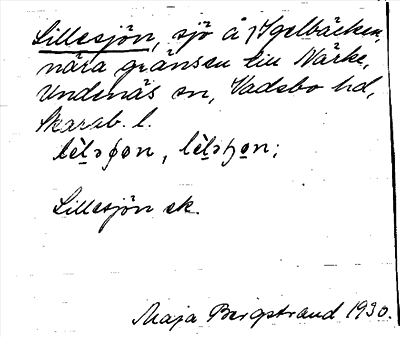 Lillesjön, sjö å Igelbäcken,
nära gränsen till Närke,
Undenäs sn, Vadsbo hd,
Skarab. l.
Lillesjön ek.
Maja Bergstrand 1930.